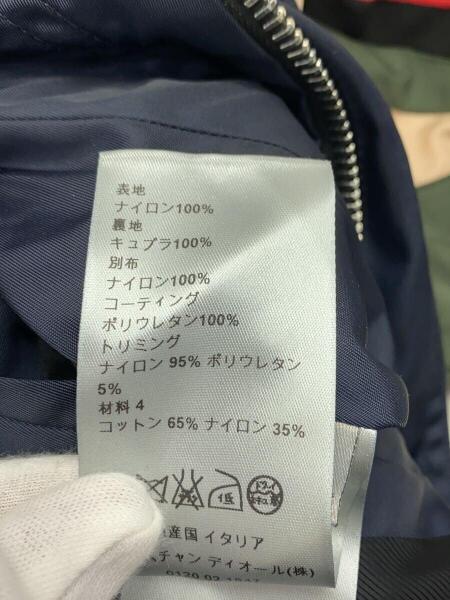 表地
ナイロン100%
裏地
キュプラ100%
別布
ナイロン100%
コーティング
ポリウレタン100%
トリミング
ナイロン 95% ポリウレタン
5%
材料 4
コットン 65% ナイロン 35%
低 ドライ
産国 イタリア
チャン ディオール(株)